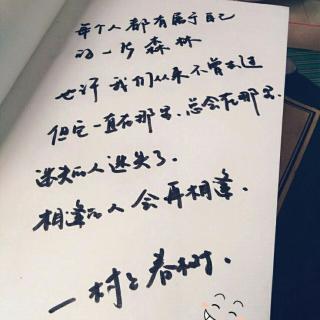 每个人都有属于自己
的一片森林
也许 我们从来不曾去过
但它一直在那里.总会在那里.
迷失的人迷失了.
相逢的人会再相逢.
一村上春树.